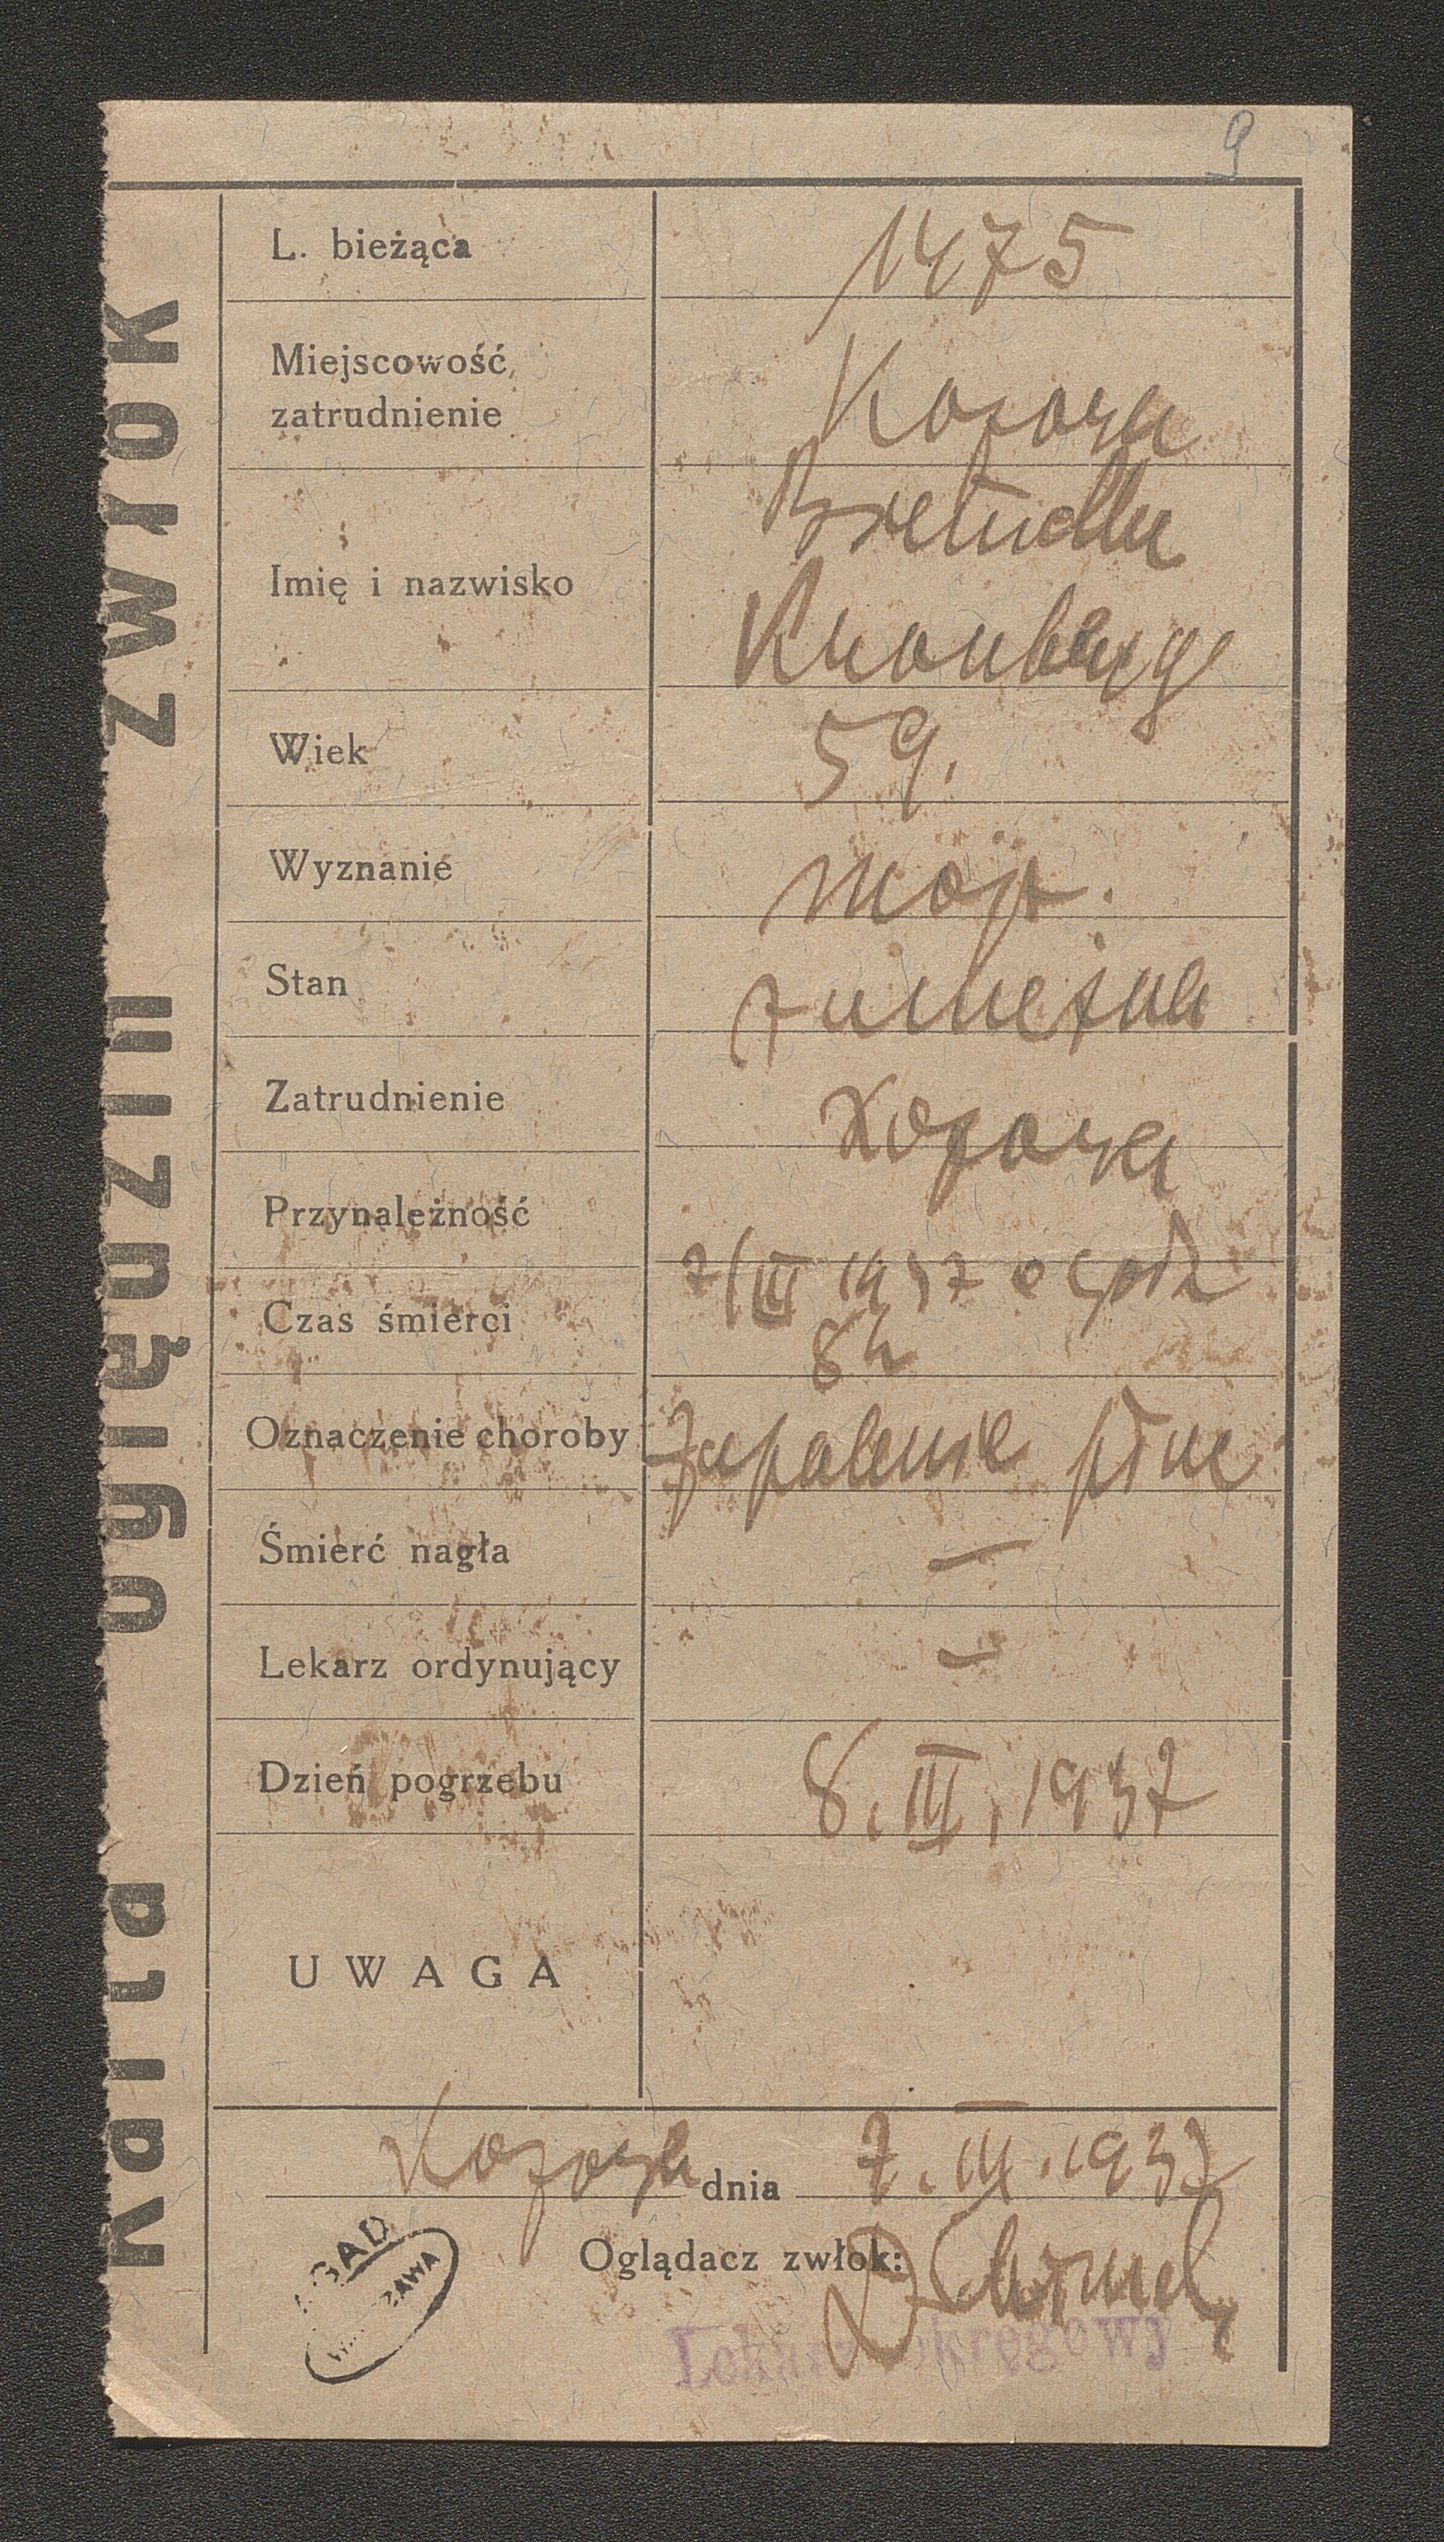 9
Karta oględzin zwłok
L. bieżąca 1475
Miejscowość, zatrudnienie Kozowa
Imię i nazwisko
Kronberg
Wiek 59.
Wyznanie mojż.
Stan zamężna
Zatrudnienie Kozowa
Przynależność
Czas śmierci 7/III 1937 o godz
8h
Oznaczenie choroby Zapalenie płuc
Śmierć nagła —
Lekarz ordynujący —
Dzień pogrzebu 8. III. 1937
UWAGA
Kozowa dnia 7. III. 1937
Oglądacz zwłok:
Lekarz okręgowy
AGAD
WARSZAWA